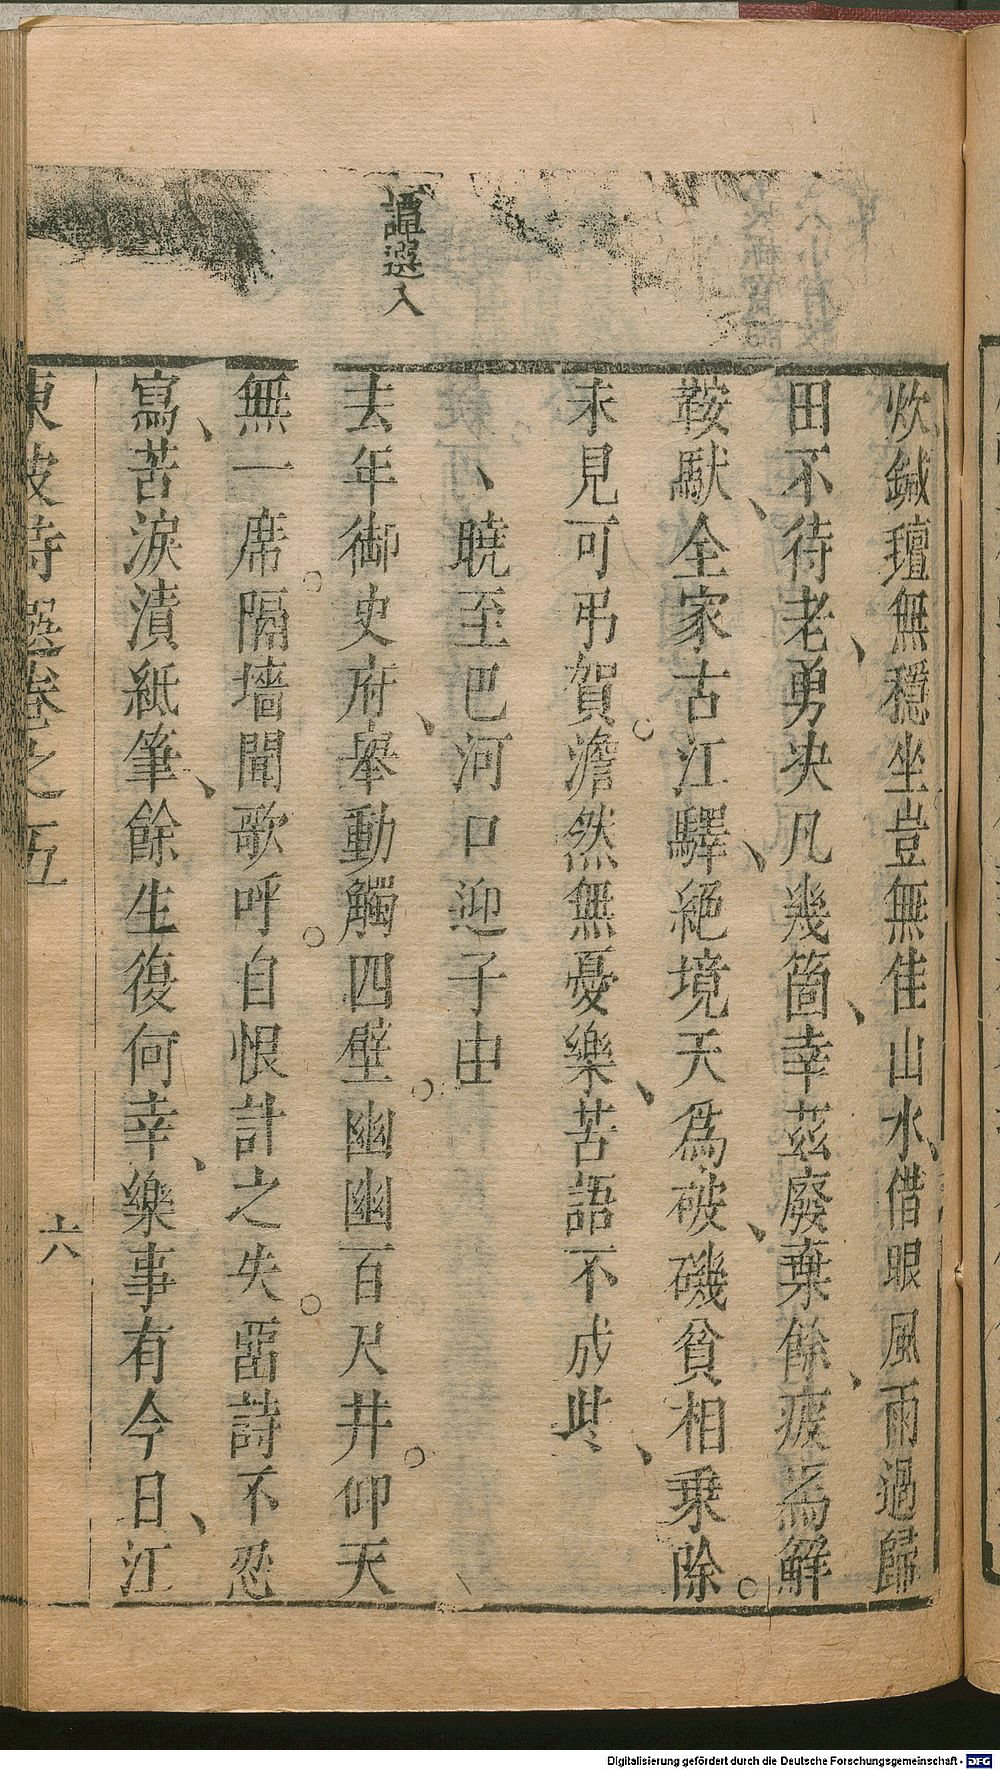 譚選入
炊鍼氊無穩坐豈無佳山水借眼風雨過歸
田不待老勇決凡幾箇幸茲廢棄餘疲馬解
鞍馱全家古江驛絕境天爲破磯貧相乗除
未見可弔賀澹然無憂樂苦語不成些
曉至巴河口迎子由
去年御史府舉動觸四壁幽幽百尺井仰天
無一席隔墻聞歌呼自恨計之失畱詩不忍
寫苦淚漬紙筆餘生復何幸樂事有今日江
東坡詩選卷之五
六
Digitalisierung gefördert durch die Deutsche Forschungsgemeinschaft - DFG